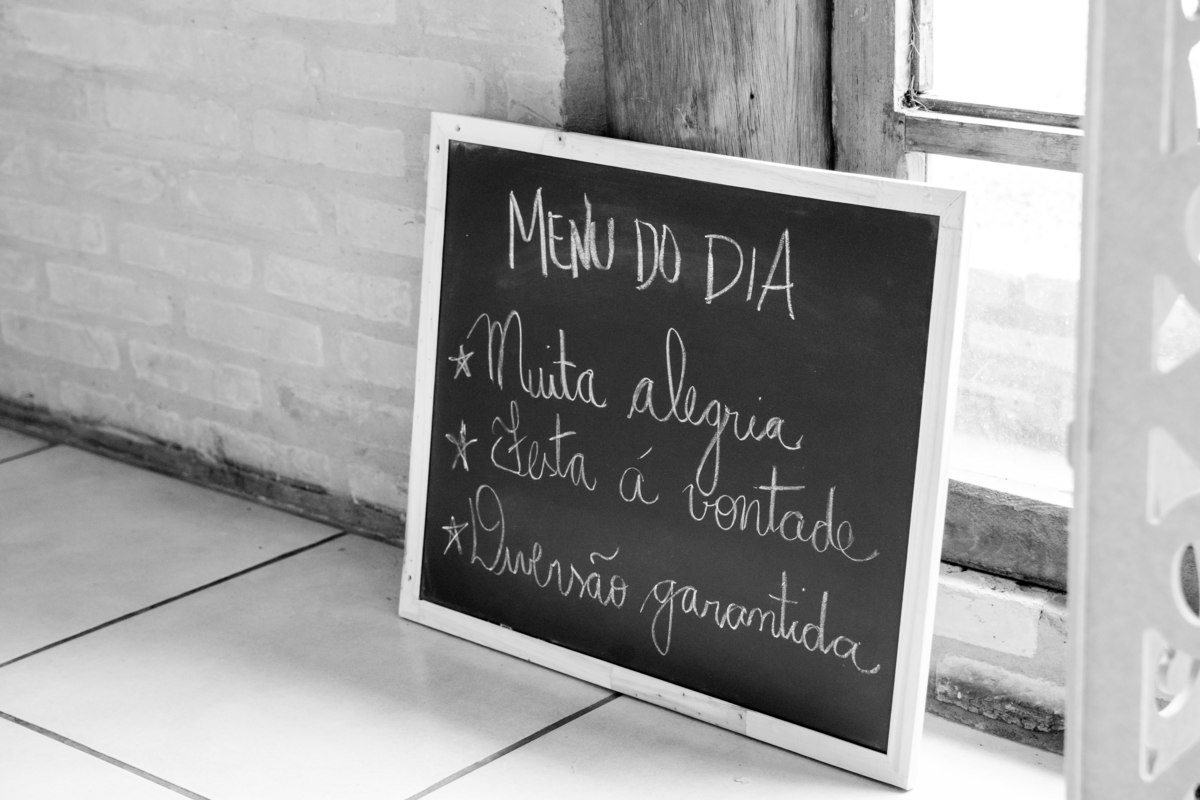 MENU DO DIA
☆ Muita alegria
☆ Festa á vontade
☆ Diversão garantida